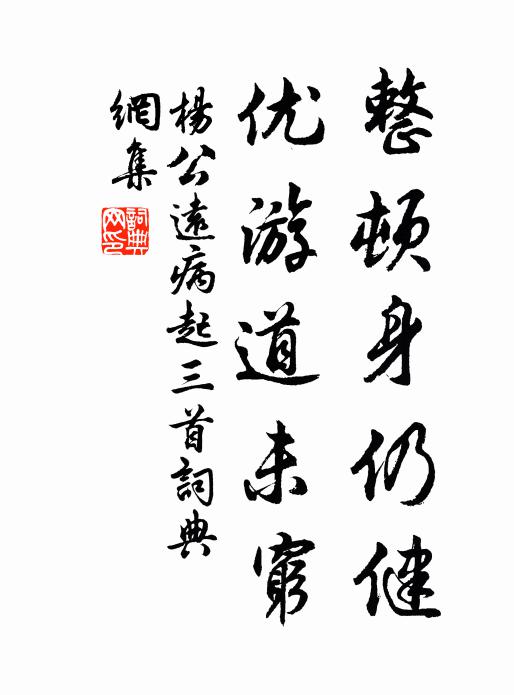 整顿身仍健
优游道未窮
楊公遠病起三首詞典
網集
詞典
网印